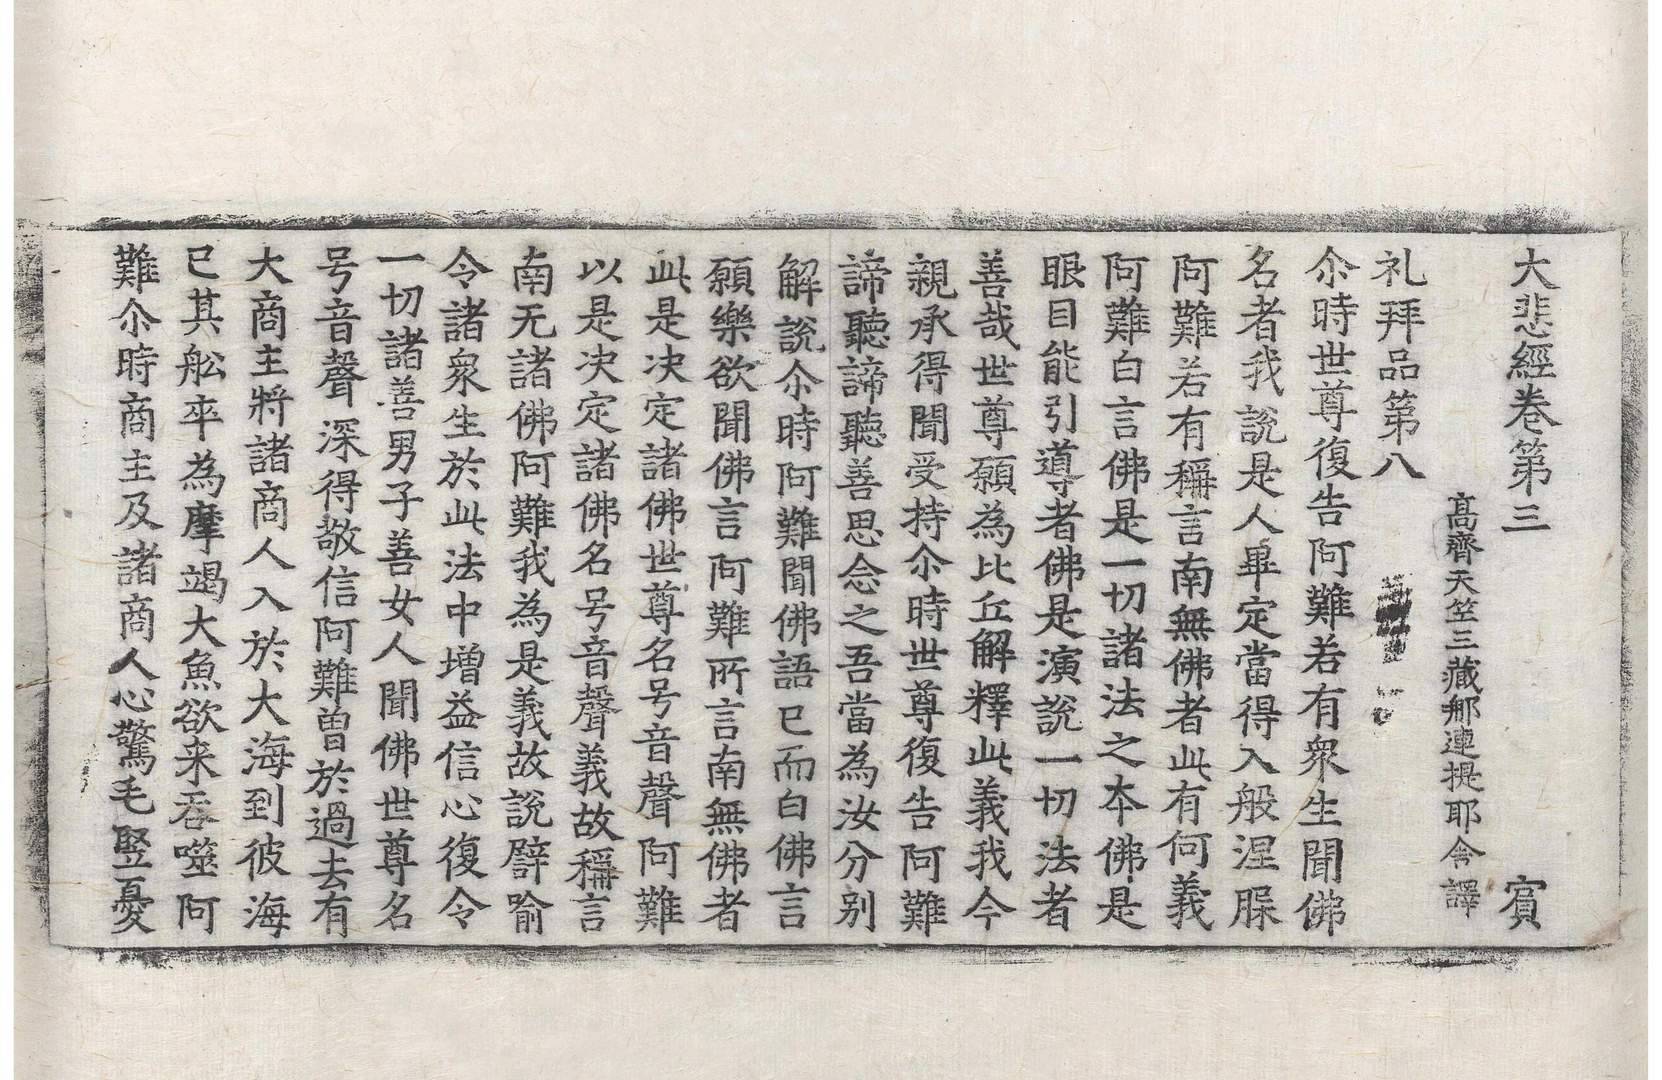 大悲經卷第三 賓
高齊天竺三藏那連提耶舍譯
礼拜品第八
尒時世尊復告阿難若有衆生聞佛
名者我說是人畢定當得入般涅脲
阿難若有稱言南無佛者此有何義
阿難白言佛是一切諸法之本佛是
眼目能引導者佛是演說一切法者
善哉世尊願為比丘解釋此義我今
親承得聞受持尒時世尊復告阿難
諦聽諦聽善思念之吾當為汝分别
解說尒時阿難聞佛語已而白佛言
願樂欲聞佛言阿難所言南無佛者
此是决定諸佛世尊名号音聲阿難
以是决定諸佛名号音聲義故稱言
南无諸佛阿難我為是義故說譬喻
令諸衆生於此法中增益信心復令
一切諸善男子善女人聞佛世尊名
号音聲深得敬信阿難曽於過去有
大商主將諸商人入於大海到彼海
已其舩卒為摩竭大魚欲来吞噬阿
難尒時商主及諸商人心驚毛竪憂